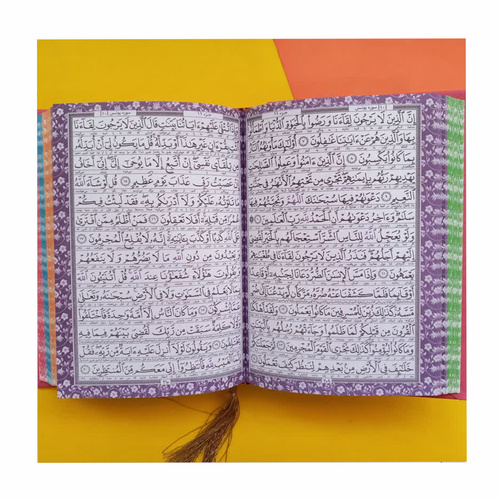 إِنَّ ٱلَّذِينَ لَا يَرْجُونَ لِقَآءَنَا وَرَضُوا۟ بِٱلْحَيَوٰةِ ٱلدُّنْيَا وَٱطْمَأَنُّوا۟
بِهَا وَٱلَّذِينَ هُمْ عَنْ ءَايَٰتِنَا غَٰفِلُونَ ٧ أُو۟لَٰٓئِكَ مَأْوَىٰهُمُ ٱلنَّارُ
بِمَا كَانُوا۟ يَكْسِبُونَ ٨ إِنَّ ٱلَّذِينَ ءَامَنُوا۟ وَعَمِلُوا۟ ٱلصَّٰلِحَٰتِ
يَهْدِيهِمْ رَبُّهُم بِإِيمَٰنِهِمْ تَجْرِى مِن تَحْتِهِمُ ٱلْأَنْهَٰرُ فِى
جَنَّٰتِ ٱلنَّعِيمِ ٩ دَعْوَىٰهُمْ فِيهَا سُبْحَٰنَكَ ٱللَّهُمَّ وَتَحِيَّتُهُمْ فِيهَا
سَلَٰمٌ وَءَاخِرُ دَعْوَىٰهُمْ أَنِ ٱلْحَمْدُ لِلَّهِ رَبِّ ٱلْعَٰلَمِينَ ١٠
وَلَوْ يُعَجِّلُ ٱللَّهُ لِلنَّاسِ ٱلشَّرَّ ٱسْتِعْجَالَهُم بِٱلْخَيْرِ لَقُضِىَ
إِلَيْهِمْ أَجَلُهُمْ فَنَذَرُ ٱلَّذِينَ لَا يَرْجُونَ لِقَآءَنَا فِى طُغْيَٰنِهِمْ
يَعْمَهُونَ ١١ وَإِذَا مَسَّ ٱلْإِنسَٰنَ ٱلضُّرُّ دَعَانَا لِجَنۢبِهِۦٓ أَوْ قَاعِدًا
أَوْ قَآئِمًا فَلَمَّا كَشَفْنَا عَنْهُ ضُرَّهُۥ مَرَّ كَأَن لَّمْ يَدْعُنَآ إِلَىٰ ضُرٍّ
مَّسَّهُۥ كَذَٰلِكَ زُيِّنَ لِلْمُسْرِفِينَ مَا كَانُوا۟ يَعْمَلُونَ ١٢ وَلَقَدْ أَهْلَكْنَا
ٱلْقُرُونَ مِن قَبْلِكُمْ لَمَّا ظَلَمُوا۟ وَجَآءَتْهُمْ رُسُلُهُم بِٱلْبَيِّنَٰتِ
وَمَا كَانُوا۟ لِيُؤْمِنُوا۟ كَذَٰلِكَ نَجْزِى ٱلْقَوْمَ ٱلْمُجْرِمِينَ ١٣ ثُمَّ جَعَلْنَٰكُمْ
خَلَٰٓئِفَ فِى ٱلْأَرْضِ مِنۢ بَعْدِهِمْ لِنَنظُرَ كَيْفَ تَعْمَلُونَ ١٤
وَإِذَا تُتْلَىٰ عَلَيْهِمْ ءَايَاتُنَا بَيِّنَٰتٍ قَالَ ٱلَّذِينَ لَا يَرْجُونَ لِقَآءَنَا
ٱئْتِ بِقُرْءَانٍ غَيْرِ هَٰذَآ أَوْ بَدِّلْهُ قُلْ مَا يَكُونُ لِىٓ أَنْ أُبَدِّلَهُۥ
مِن تِلْقَآئِ نَفْسِىٓ إِنْ أَتَّبِعُ إِلَّا مَا يُوحَىٰٓ إِلَىَّ إِنِّىٓ أَخَافُ إِنْ
عَصَيْتُ رَبِّى عَذَابَ يَوْمٍ عَظِيمٍ ١٥ قُل لَّوْ شَآءَ ٱللَّهُ
مَا تَلَوْتُهُۥ عَلَيْكُمْ وَلَآ أَدْرَىٰكُم بِهِۦ فَقَدْ لَبِثْتُ فِيكُمْ
عُمُرًا مِّن قَبْلِهِۦٓ أَفَلَا تَعْقِلُونَ ١٦ فَمَنْ أَظْلَمُ مِمَّنِ ٱفْتَرَىٰ
عَلَى ٱللَّهِ كَذِبًا أَوْ كَذَّبَ بِـَٔايَٰتِهِۦٓ إِنَّهُۥ لَا يُفْلِحُ ٱلْمُجْرِمُونَ ١٧
وَيَعْبُدُونَ مِن دُونِ ٱللَّهِ مَا لَا يَضُرُّهُمْ وَلَا يَنفَعُهُمْ
وَيَقُولُونَ هَٰٓؤُلَآءِ شُفَعَٰٓؤُنَا عِندَ ٱللَّهِ قُلْ أَتُنَبِّـُٔونَ ٱللَّهَ
بِمَا لَا يَعْلَمُ فِى ٱلسَّمَٰوَٰتِ وَلَا فِى ٱلْأَرْضِ سُبْحَٰنَهُۥ وَتَعَٰلَىٰ
عَمَّا يُشْرِكُونَ ١٨ وَمَا كَانَ ٱلنَّاسُ إِلَّآ أُمَّةً وَٰحِدَةً فَٱخْتَلَفُوا۟
وَلَوْلَا كَلِمَةٌ سَبَقَتْ مِن رَّبِّكَ لَقُضِىَ بَيْنَهُمْ فِيمَا فِيهِ
يَخْتَلِفُونَ ١٩ وَيَقُولُونَ لَوْلَآ أُنزِلَ عَلَيْهِ ءَايَةٌ مِّن رَّبِّهِۦ فَقُلْ
إِنَّمَا ٱلْغَيْبُ لِلَّهِ فَٱنتَظِرُوٓا۟ إِنِّى مَعَكُم مِّنَ ٱلْمُنتَظِرِينَ ٢٠